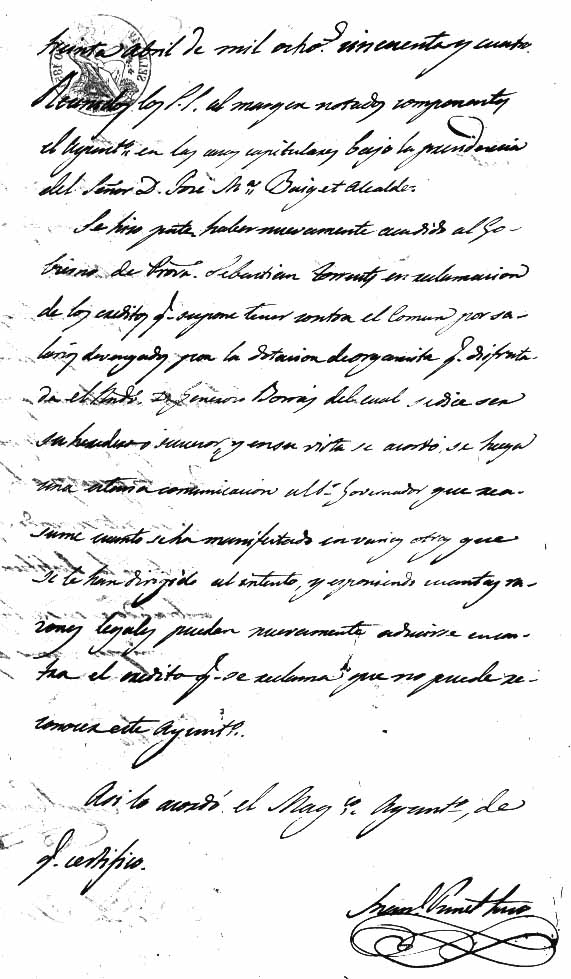 treinta abril de mil ocho.s cincuenta y cuatro.
Reunidos los S.S. al margen notados componentes
el Ayunt.o en las casas capitulares bajo la presidencia
del Señor D. José M.a Puiget Alcalde.
Se hizo parte haber nuevamente acudido al Go-
bierno de Prova. Sebastian Torrents en reclamacion
de los creditos q.e supone tener contra el Comun por sa-
larios devengados por la dotacion de organista q.e disfruta-
ba el D. Genaro Borrás del cual se dice ser
su heredero i sucesor, y en su vista se acordó, se haga
una atenta comunicacion al S.r Governador que rea-
sume cuanto se ha manifestado en varias otras que
se le han dirigido al intento, y esponiendo cuantas ra-
zones legales puedan nuevamente aducirse en con-
tra el credito q.e se reclama que no puede re-
conocer este Ayunt.o.
Asi lo acordó el Mag.co Ayunt.o, de
q.e certifico.